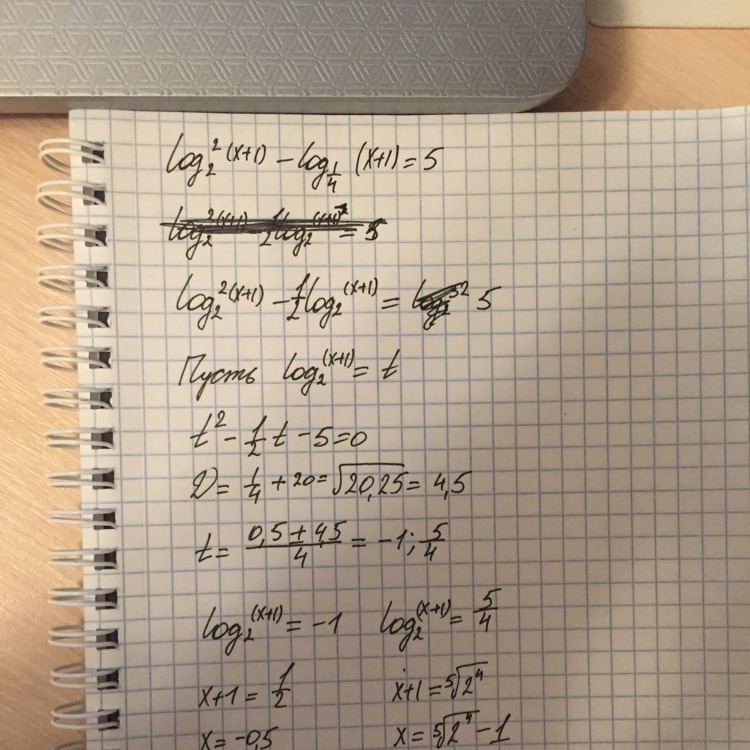 log₂²(x+1) − log_{1/4} (x+1) = 5
log₂²(x+1) − 1/2 log₂(x+1) = 5
Пусть log₂(x+1) = t
t² − 1/2 t − 5 = 0
D = 1/4 + 20 = √20,25 = 4,5
t = (0,5 ± 4,5)/4 = −1; 5/4
log₂(x+1) = −1 log₂(x+1) = 5/4
x+1 = 1/2 x+1 = ⁵√2⁴
x = −0,5 x = ⁵√2⁴ − 1